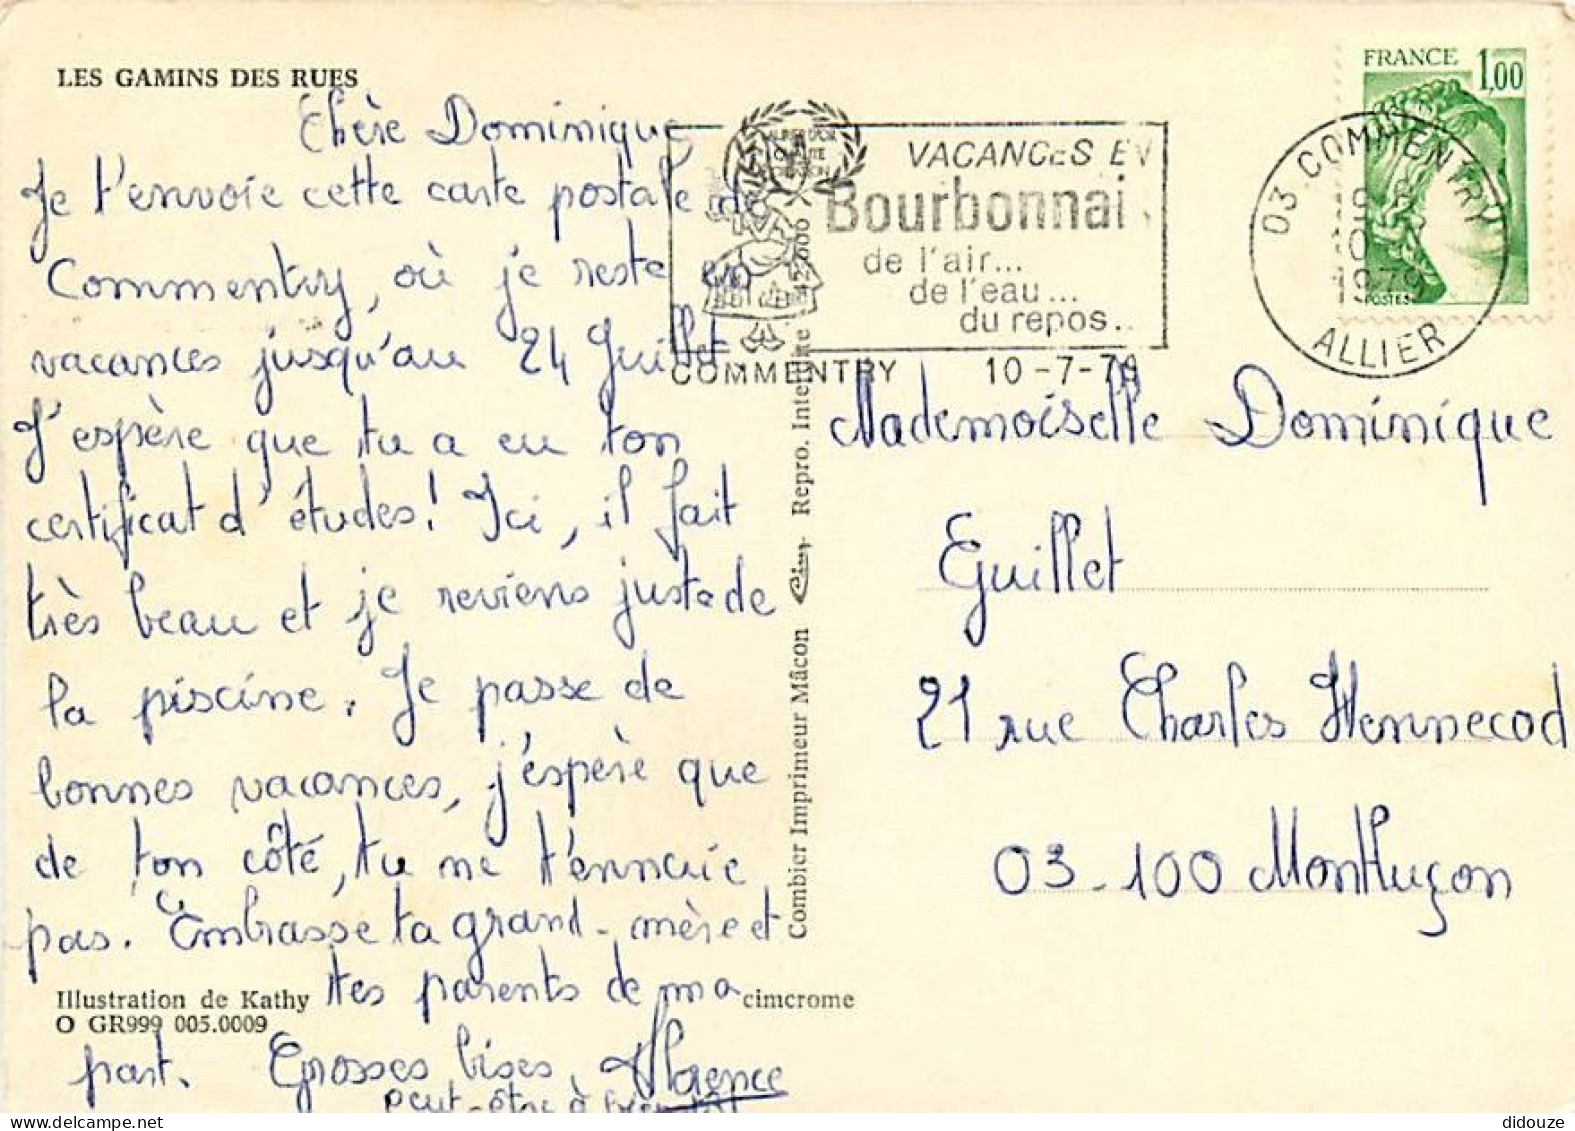 LES GAMINS DES RUES
Chère Dominique
Je t'envoie cette carte postale de
Commentry, où je reste en
vacances jusqu'au 24 Juillet.
J'espère que tu a eu ton
certificat d'études! Ici, il fait
très beau et je reviens juste de
la piscine. Je passe de
bonnes vacances, j'espère que
de ton côté, tu ne t'ennuie
pas. Embrasse ta grand-mère et
tes parents de ma
part. Grosses bises, Florence
peut-être à bientôt
Illustration de Kathy
O GR999 005.0009
cimcrome
Combier Imprimeur Mâcon Cim Repro. Interdite
VACANCES EN
Bourbonnai
de l'air...
de l'eau...
du repos..
COMMENTRY 10-7-79
FRANCE 1,00
POSTES
03 COMMENTRY
1979
ALLIER
Mademoiselle Dominique
Guillet
21 rue Charles Hennecod
03-100 Montluçon
didouze